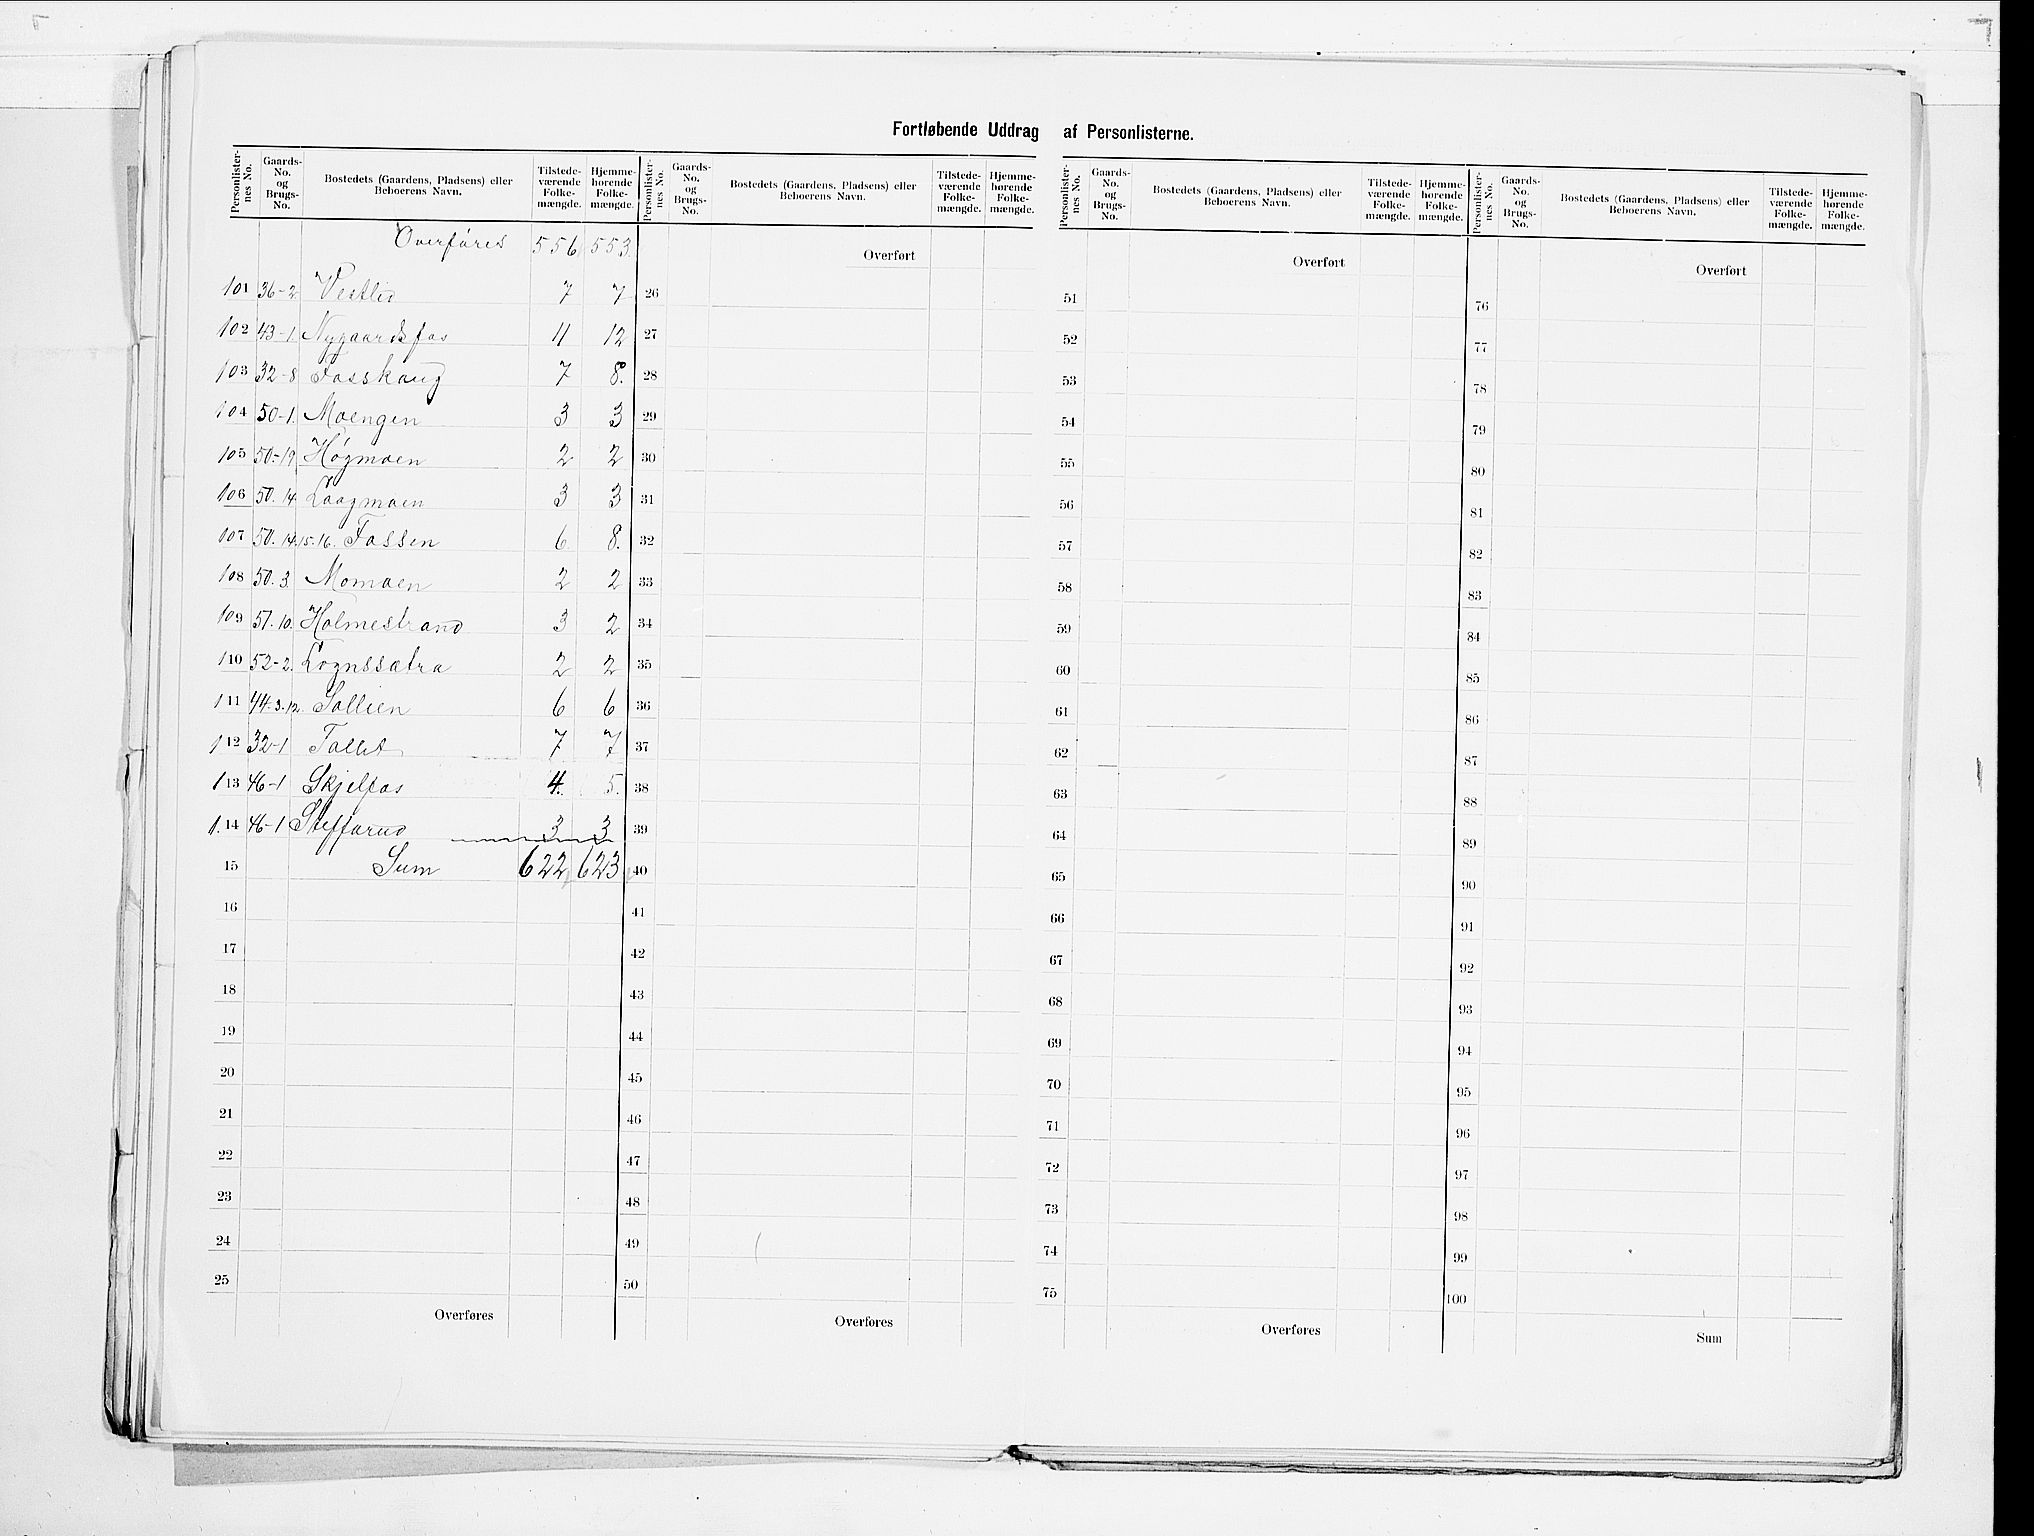 Fortløbende Uddrag af Personlisterne.
Personlisternes No. Gaards-No. og Brugs-No. Bostedets (Gaardens, Pladsens) eller Beboerens Navn. Tilstedeværende Folkemængde. Hjemmehørende Folkemængde.
Overføres 556 553
101 36-2 Vestlid 7 7
102 43-1 Nygaardsfos 11 12
103 32-8 Fosskaug 7 8.
104 50-1. Moengen 3 3
105 50-19 Høgmoen 2 2
106 50.14. Laagmoen 3 3
107 50.14.15.16. Fossen 6 8.
108 50.3. Momoen 2 2
109 51.10. Holmestrand 3 2
110 52-2. Lognssætra 2 2
111 44.3.12. Sollien 6 6
112 32-1 Tollet 7 7
113 46-1 Skjelfos 4. 5.
1.14 46-1 Steffarud 3 3
15 Sum 622 623
16
17
18
19
20
21
22
23
24
25
Overføres
Personlisternes No. Gaards-No. og Brugs-No. Bostedets (Gaardens, Pladsens) eller Beboerens Navn. Tilstedeværende Folkemængde. Hjemmehørende Folkemængde.
Overført
26
27
28
29
30
31
32
33
34
35
36
37
38
39
40
41
42
43
44
45
46
47
48
49
50
Overføres
Personlisternes No. Gaards-No. og Brugs-No. Bostedets (Gaardens, Pladsens) eller Beboerens Navn. Tilstedeværende Folkemængde. Hjemmehørende Folkemængde.
Overført
51
52
53
54
55
56
57
58
59
60
61
62
63
64
65
66
67
68
69
70
71
72
73
74
75
Overføres
Personlisternes No. Gaards-No. og Brugs-No. Bostedets (Gaardens, Pladsens) eller Beboerens Navn. Tilstedeværende Folkemængde. Hjemmehørende Folkemængde.
Overført
76
77
78
79
80
81
82
83
84
85
86
87
88
89
90
91
92
93
94
95
96
97
98
99
100
Sum